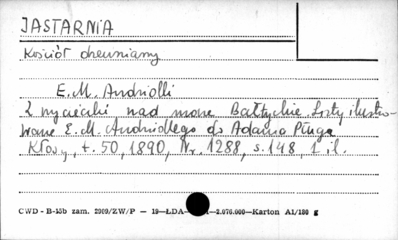 JASTARNIA
Kościół drewniany
E.M. Andriolli
Z wycieczki nad morze Bałtyckie. Listy ilustro-
wane E.M. Andriollego do Adama Pługa
Kłosy, t. 50, 1890, Nr. 1288, s. 148, 1 il.
CWD - B-15b zam. 2909/ZW/P — 19—ŁDA— —2.076.000—Karton A1/180 g